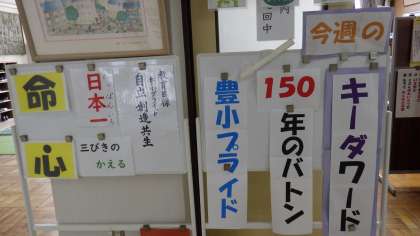 今週の
キーダワード
150
年のバトン
豊小プライド
教育目標
自立 創造 共生
日本一
三びきの
かえる
命
心
回中